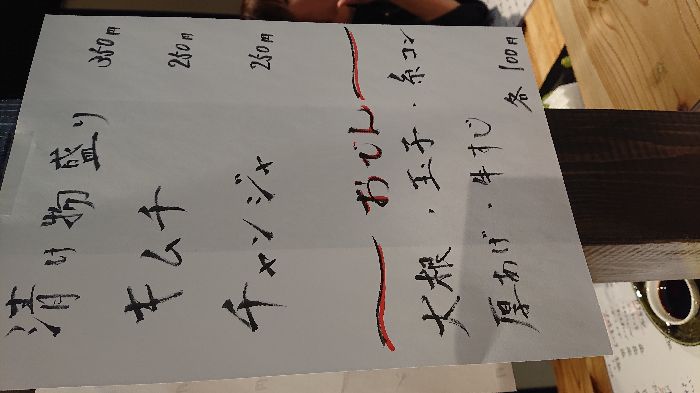 漬け物盛り 350円
キムチ 250円
チャンジャ 250円
〜おでん〜
大根・玉子・糸コン
厚あげ・牛すじ
各100円